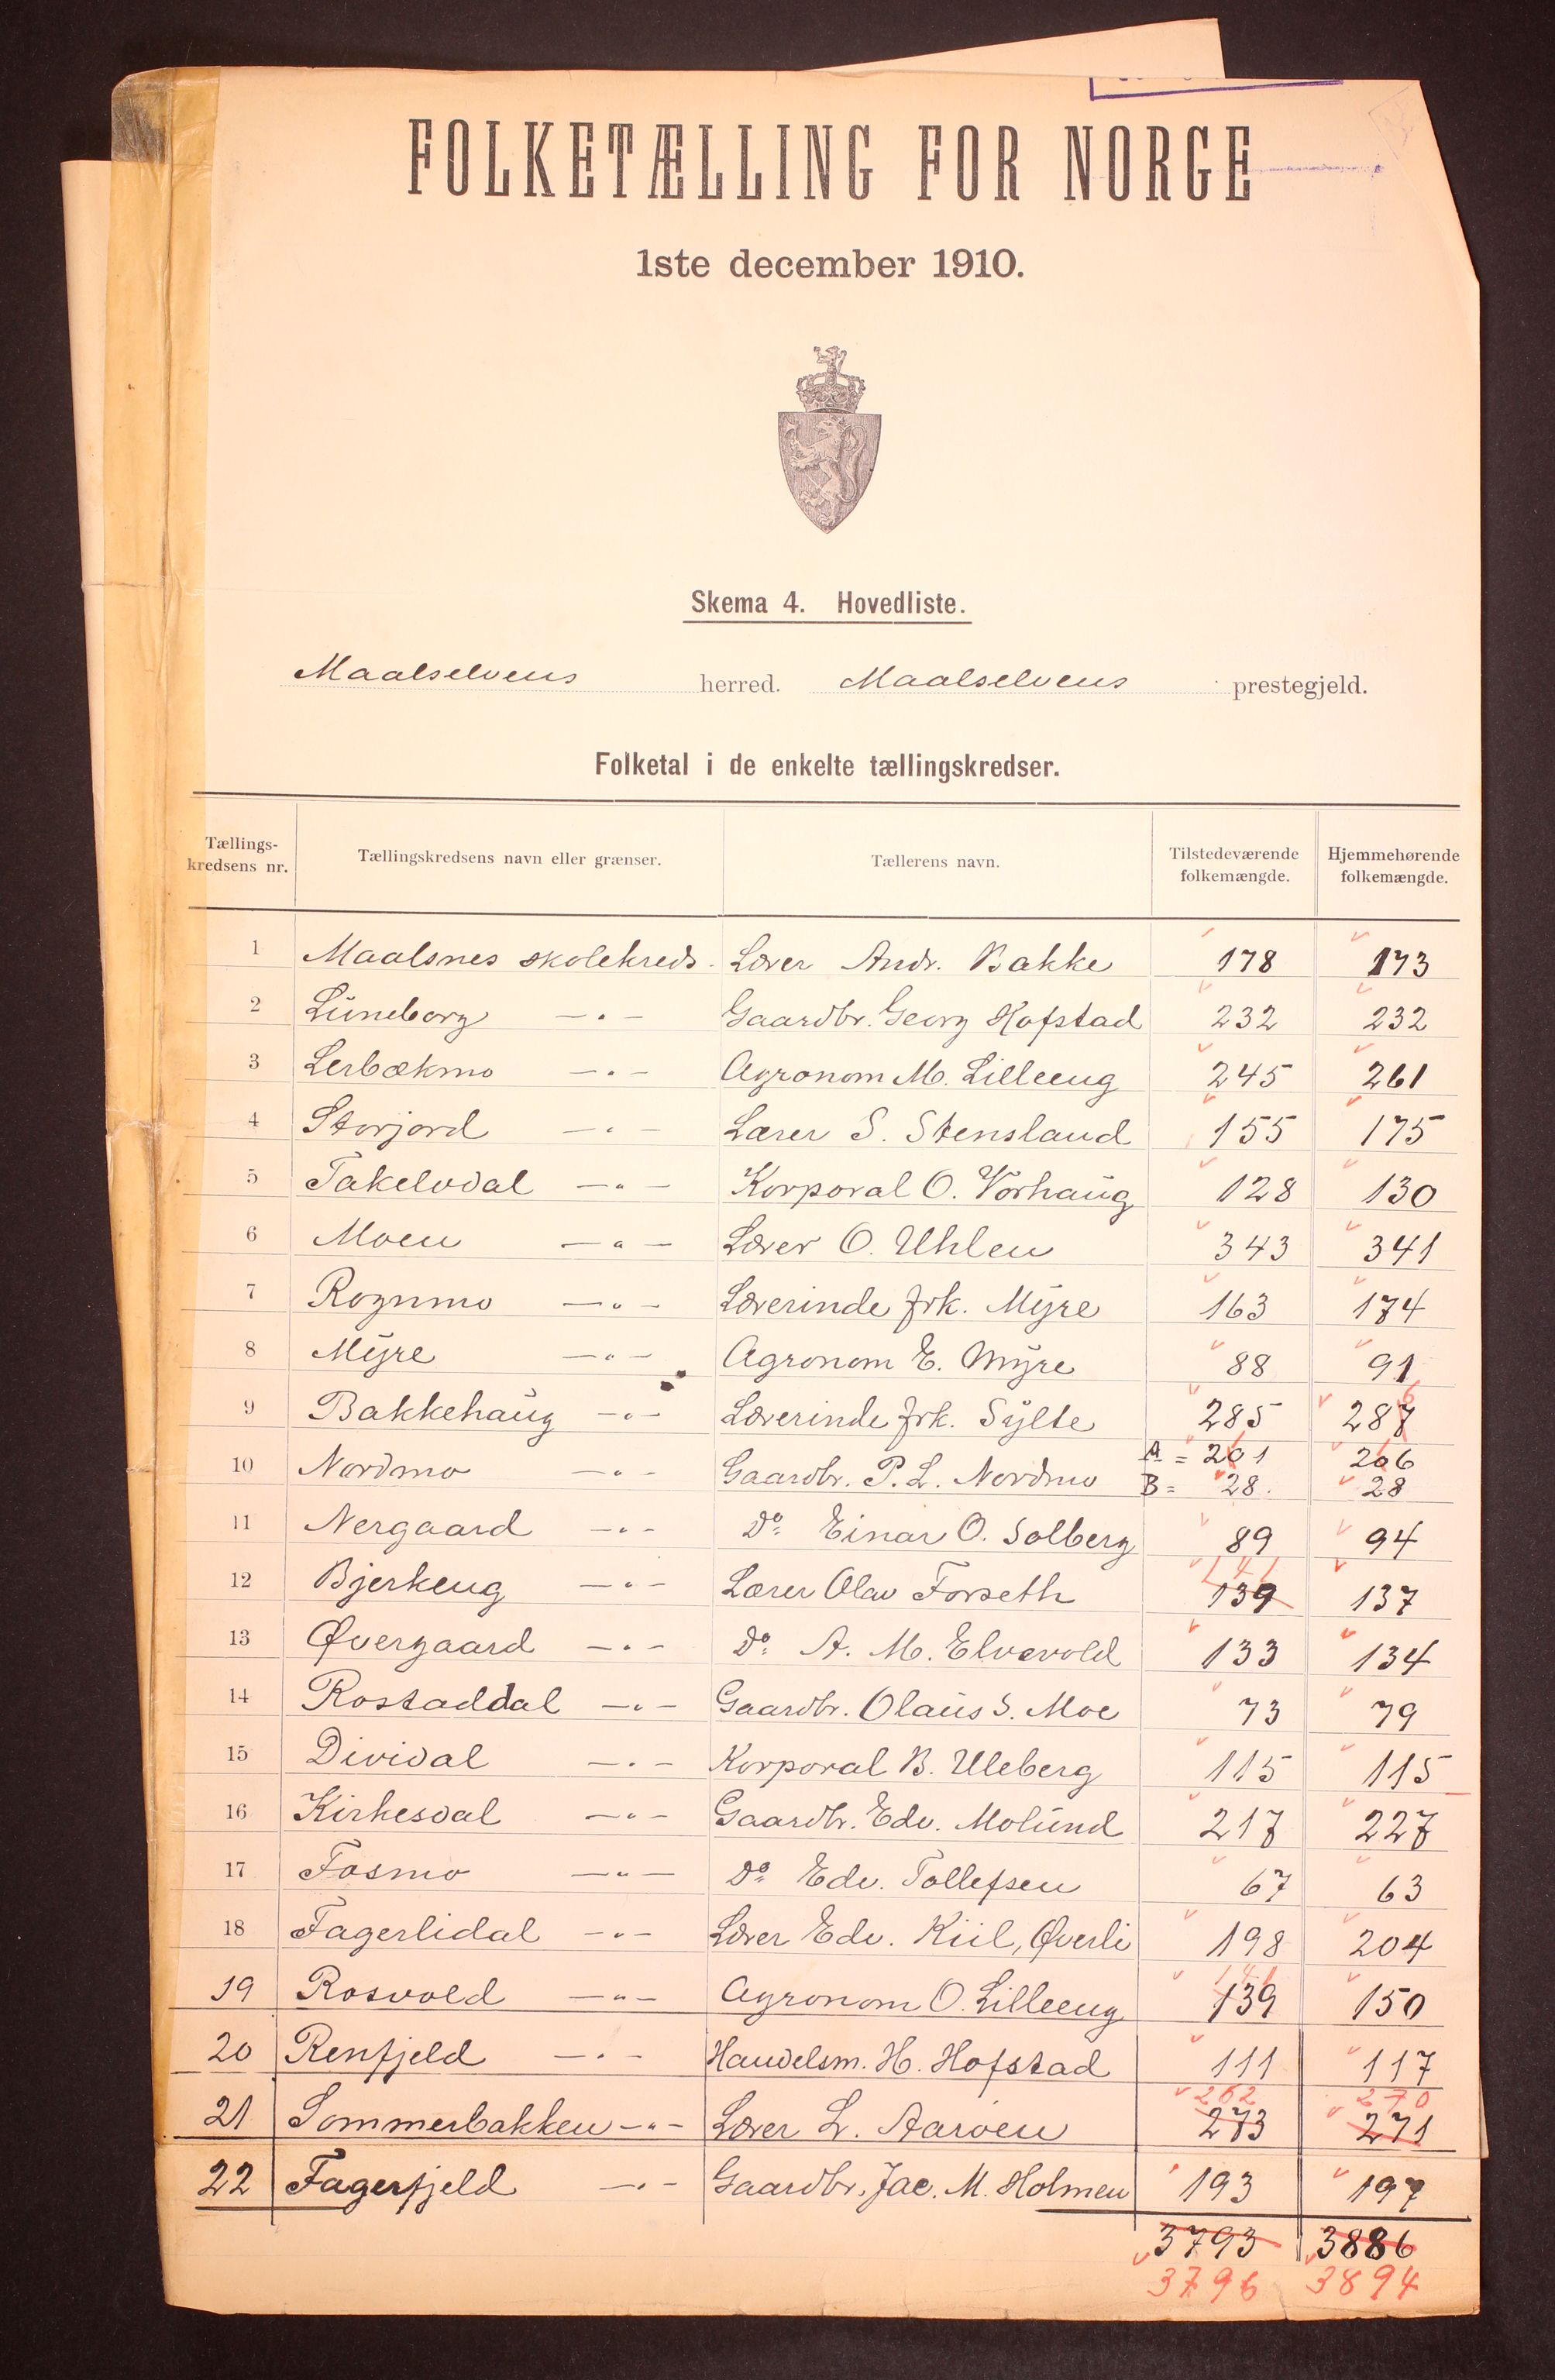 FOLKETÆLLING FOR NORGE
1ste december 1910.
Skema 4. Hovedliste.
Maalselvens herred. Maalselvens prestegjeld.
Folketal i de enkelte tællingskredser.
Tællings-kredsens nr. Tællingskredsens navn eller grænser. Tællerens navn. Tilstedeværende folkemængde. Hjemmehørende folkemængde.
1 Maalsnes skolekreds. Lærer Andr. Bakke 178 173
2 Lüneborg —〃— Gaardbr. Georg Hofstad 232 232
3 Lerbækmo —〃— Agronom M. Lilleeng 245 261
4 Storjord —〃— Lærer S. Stensland 155 175
5 Takelvdal —〃— Korporal O. Vorhaug 128 130
6 Moen —〃— Lærer O. Uhlen 343 341
7 Rognmo —〃— Lærerinde frk. Myre 163 174
8 Myre —〃— Agronom E. Myre 88 91
9 Bakkehaug —〃— Lærerinde frk. Sylte 285 287 6
10 Nordmo —〃— Gaardbr. P. L. Nordmo A = 201 206
B = 28. 28
11 Nergaard —〃— Do Einar O. Solberg 89 94
12 Bjerkeng —〃— Lærer Olav Forseth 139 141 137
13 Øvergaard —〃— Do A. M. Elvevold 133 134
14 Rostaddal —〃— Gaardbr. Olaus S. Moe 73 79
15 Dividal —〃— Korporal B. Uleberg 115 115
16 Kirkesdal —〃— Gaardbr. Edv. Molund 217 227
17 Fosmo —〃— Do Edv. Tollefsen 67 63
18 Fagerlidal —〃— Lærer Edv. Kiil, Øverli 198 204
19 Rosvold —〃— Agronom O. Lilleeng 139 141 150
20 Renfjeld —〃— Handelsm. H. Hofstad 111 117
21 Sommerbakken —〃— Lærer L. Aarøen 273 262 271 270
22 Fagerfjeld —〃— Gaardbr. Jac. M. Holmen 193 197
3793 3886
3796 3894